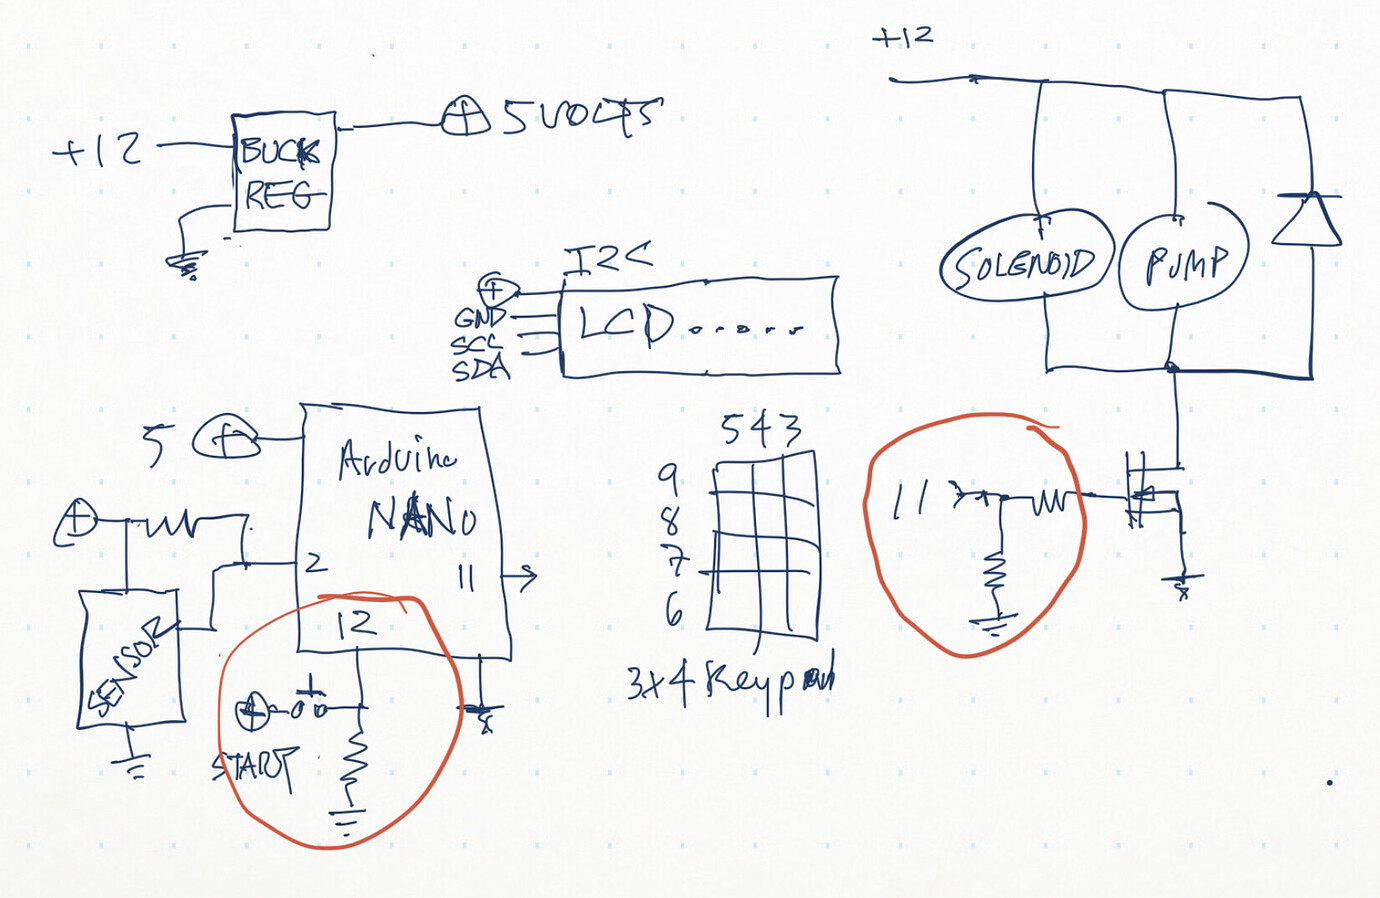 +12
+12
BUCK
REG
5 VOLTS
I2C
SOLENOID
PUMP
GND
SCL
SDA
LCD
5
Arduino
NANO
2
11
12
SENSOR
START
543
9
8
7
6
3x4 Keypad
11